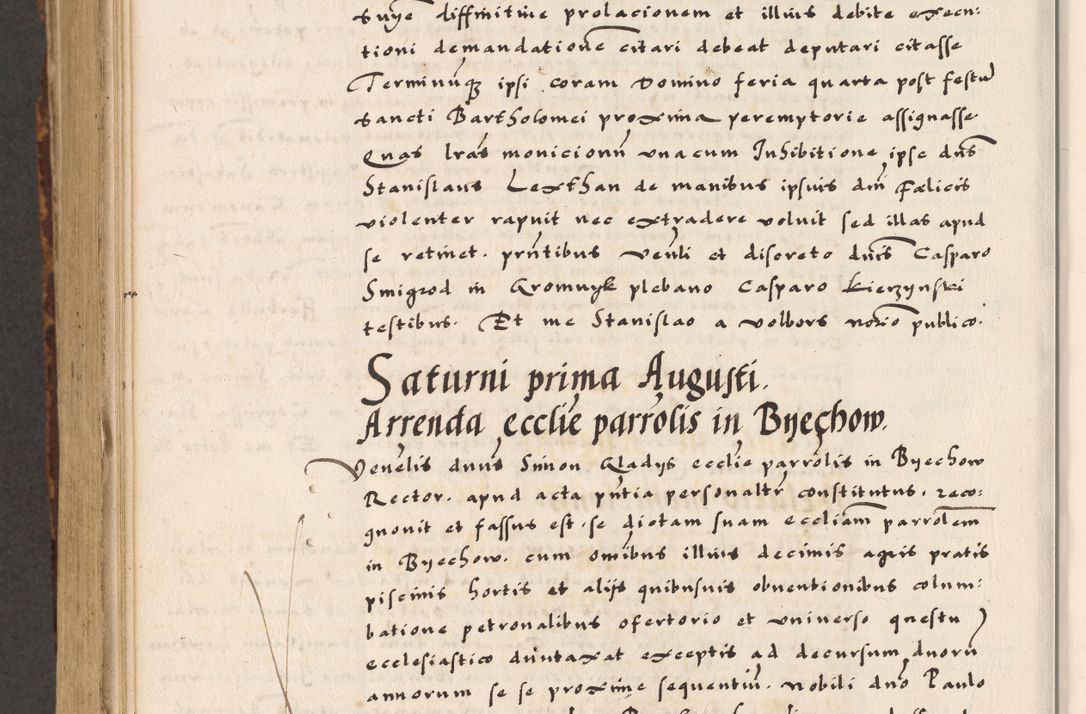 suye diffinitiue prolacionem et illius debite execu:
tioni demandatione citari debeat deputari citasse
Terminumq ipsi coram Domino feria quarta post festu
sancti Bartholomei proxima peremptorie assignasse
Quas lras monicionu unacum Inhibitione ipse dns
Stanislaus Lexthan de manibus ipsius dni Fælicis
violenter rapuit nec extradere voluit sed illas apud
se retinet. pntibus venli et discreto dnis Casparo
Smigrod in Gromnyk plebano Casparo Kierzynski
testibus. Et me Stanislao a volbors notio publico.
Saturni prima Augusti.
Arrenda ecclie parrolis in Byechow.
Venelis dnus Simon Gladys ecclie parrolis in Byechow
Rector. apud acta pntia personaltr constitutus. reco:
gnouit et fassus est. se dictam suam eccliam parrolem
in Byechow. cum omibus illius decimis agris pratis
piscinis hortis et alijs quibusuis obuentionibus colum:
batione petronalibus ofertorio et universo questu
ecclesiastico duntaxat exceptis ad decursum duoru
annorum se se proxime sequentiu. Nobili dno Paulo